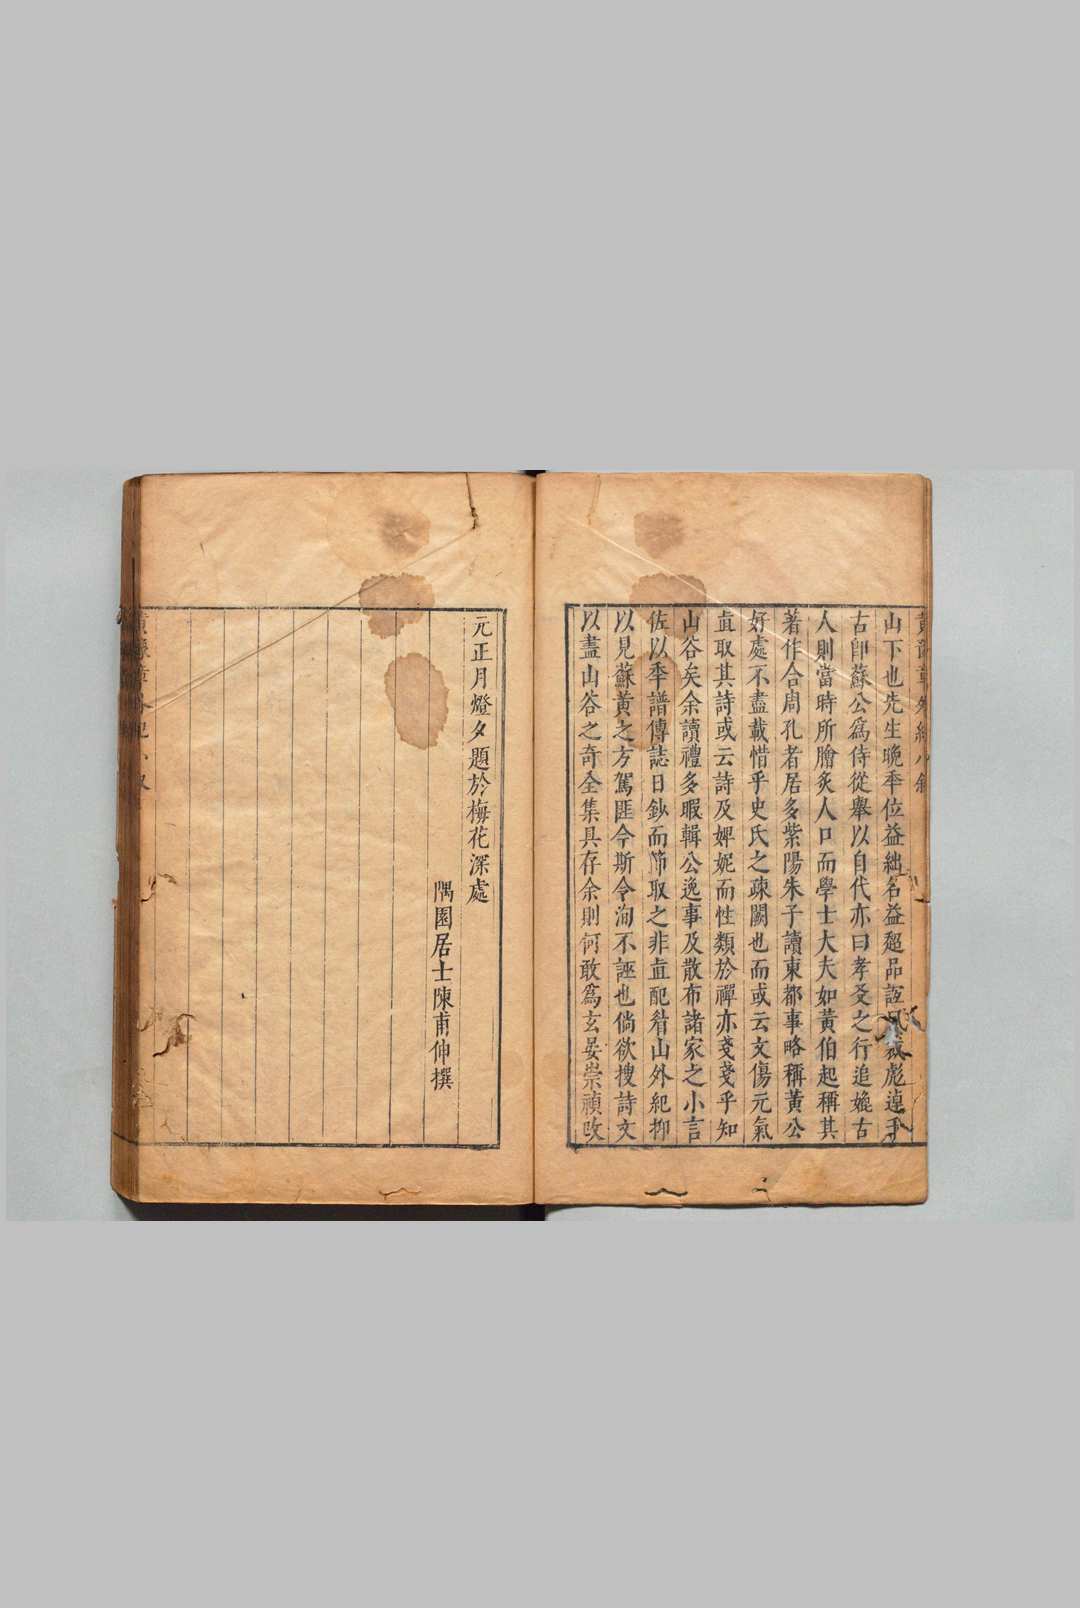 山下也先生晚年位益絀名益超品詆風裁彪逴乎
古即蘇公爲侍從舉以自代亦曰孝爻之行追媲古
人則當時所膾炙人口而學士大夫如黃伯起稱其
著作合周孔者居多紫陽朱子讀東都事略稱黃公
好處不盡載惜乎史氏之疎闕也而或云文傷元氣
直取其詩或云詩及婢妮而性類於禪亦戔戔乎知
山谷矣余讀禮多暇輯公逸事及散布諸家之小言
佐以年譜傳誌日鈔而節取之非直配眷山外紀抑
以見蘇黃之方駕匪今斯今洵不誣也倘欲搜詩文
以盡山谷之奇全集具存余則何敢爲玄晏崇禎改
元正月燈夕題於梅花深處
隅園居士陳甫伸撰